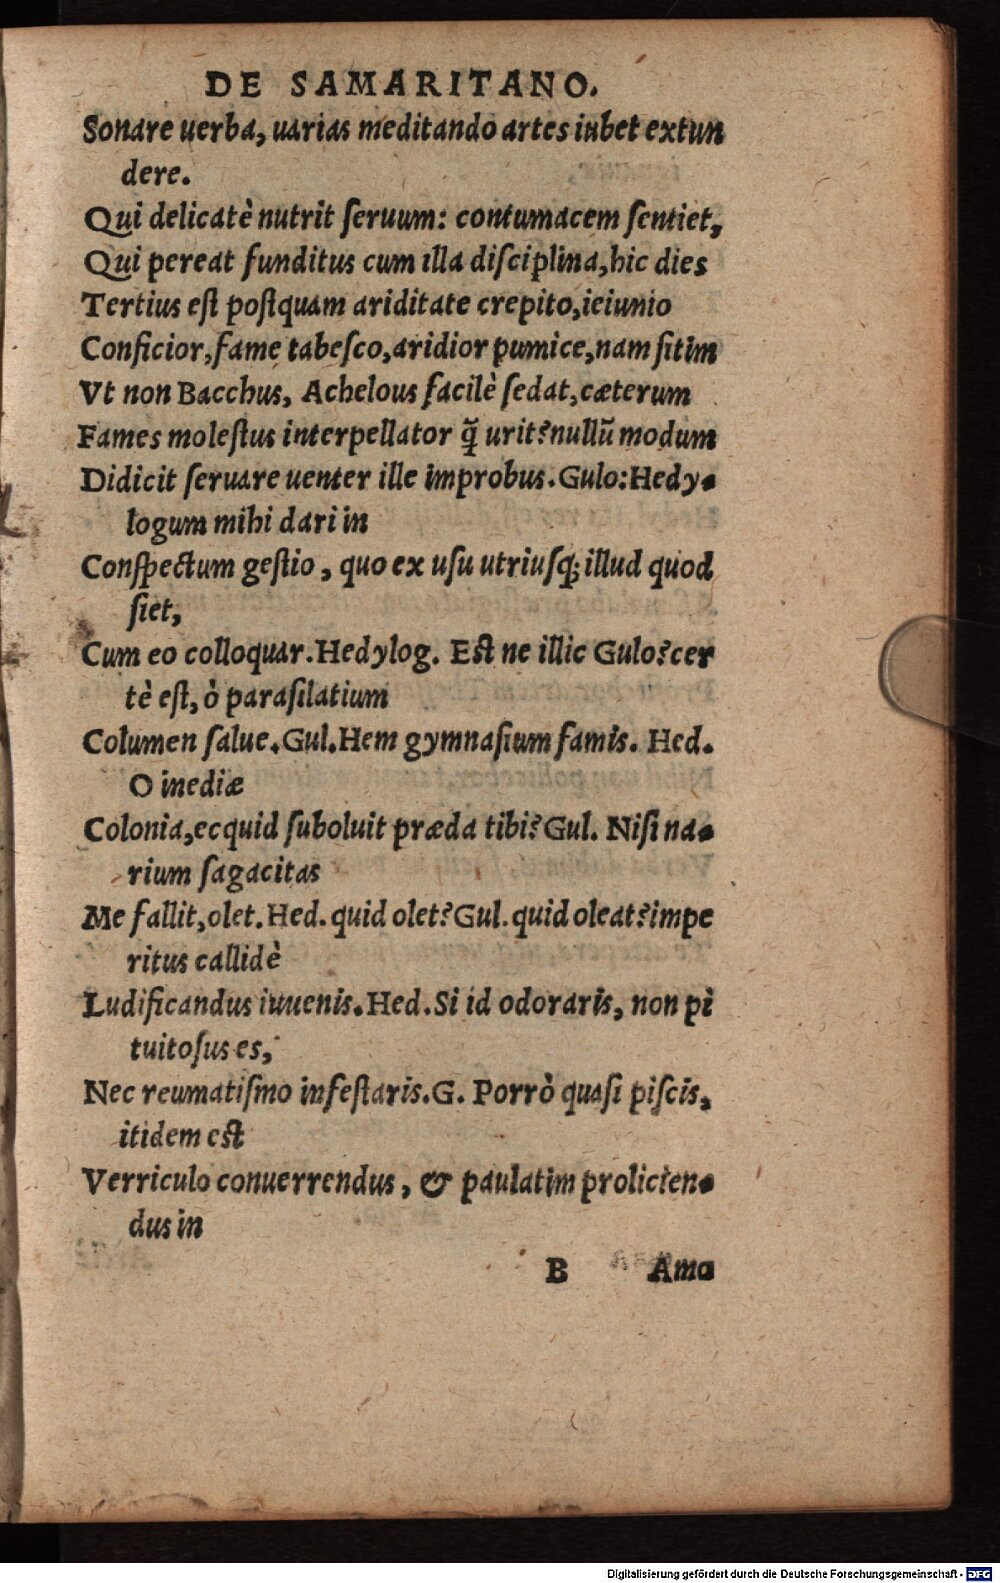 DE SAMARITANO.
Sonare uerba, uarias meditando artes iubet extun
dere.
Qui delicatè nutrit ſeruum: contumacem ſentiet,
Qui pereat funditus cum illa diſciplina,hic dies
Tertius eſt poſtquam ariditate crepito,ieiunio
Conficior,fame tabeſco,aridior pumice,nam ſitim
Vt non Bacchus, Achelous facilè ſedat,cæterum
Fames moleſtus interpellator q̃ urit?nullũ modum
Didicit ſeruare uenter ille improbus.Gulo:Hedy-
logum mihi dari in
Conſpectum geſtio, quo ex uſu utriuſq; illud quod
ſiet,
Cum eo colloquar.Hedylog. Eſt ne illic Gulo?cer
tè eſt, ò paraſilatium
Columen ſalue.Gul.Hem gymnaſium famis. Hed.
O inediæ
Colonia,ecquid ſuboluit præda tibi?Gul. Niſi na-
rium ſagacitas
Me fallit,olet.Hed.quid olet?Gul.quid oleat?impe
ritus callidè
Ludificandus iuuenis.Hed.Si id odoraris, non pi
tuitoſus es,
Nec reumatiſmo infeſtaris.G. Porrò quaſi piſcis,
itidem eſt
Verriculo conuerrendus, & paulatim prolicien-
dus in
B Amo
Digitalisierung gefördert durch die Deutsche Forschungsgemeinschaft - DFG